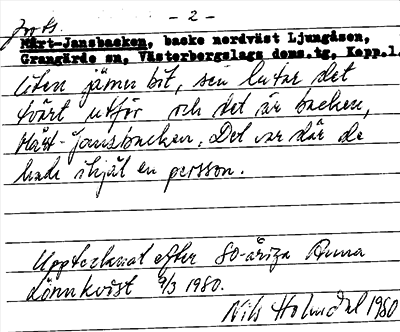 forts.
- 2 -
Mårt-Jansbacken, backe nordväst Ljungåsen,
Grangärde sn, Västerbergslags doms.tg, Kopp.l.
liten jämn bit, sen lutar det
tvärt utför och det är backen,
Mårt-Jansbacken. Det var där de
hade ihjäl en person.
Upptecknat efter 80-åriga Anna
Lönnkvist 9/3 1980.
Nils Holmdal 1980